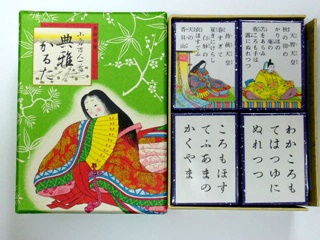 小倉百人一首
典雅
かるた
持統天皇
春すぎて
夏きにけらし
白妙の
衣ほすてふ
天の
香具山
天智天皇
秋の田の
かりほの
庵の
苫をあらみ
わが衣手は
露にぬれつつ
ころもほす
てふあまの
かくやま
わかころも
てはつゆに
ぬれつつ